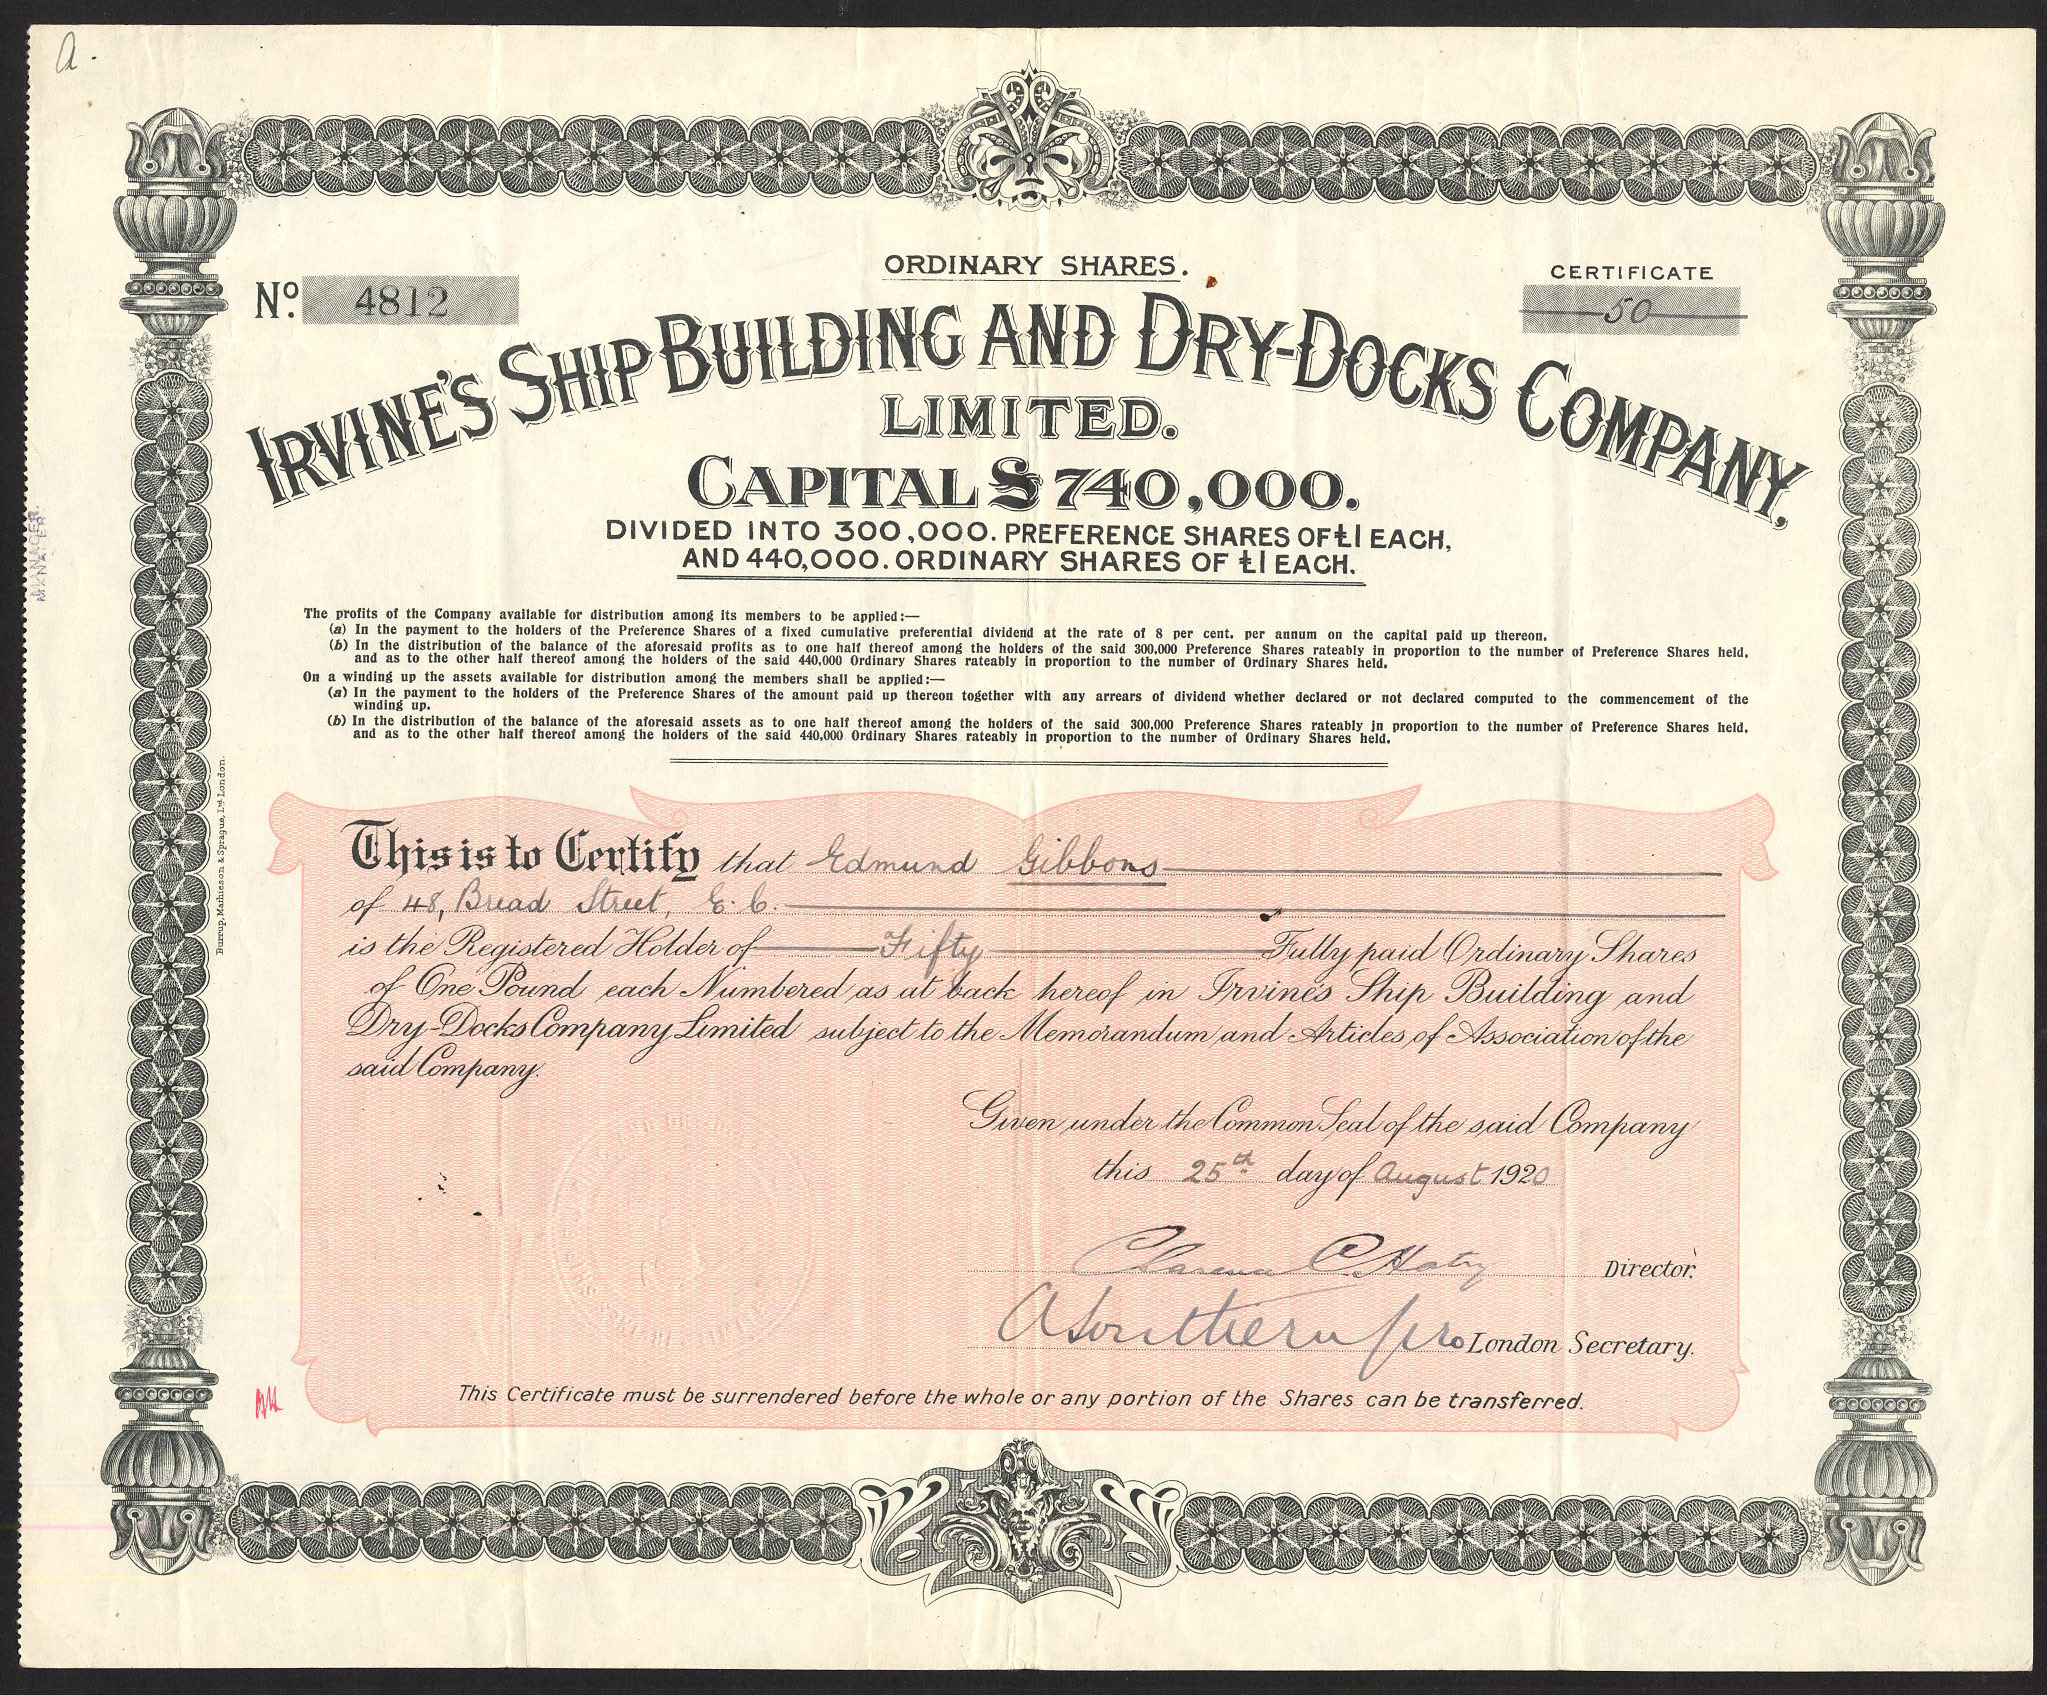 a.
ORDINARY SHARES.
Nº. 4812
CERTIFICATE
50
IRVINE'S SHIP BUILDING AND DRY-DOCKS COMPANY,
LIMITED.
CAPITAL £740,000.
DIVIDED INTO 300,000. PREFERENCE SHARES OF £1 EACH,
AND 440,000. ORDINARY SHARES OF £1 EACH.
The profits of the Company available for distribution among its members to be applied:—
(a) In the payment to the holders of the Preference Shares of a fixed cumulative preferential dividend at the rate of 8 per cent. per annum on the capital paid up thereon.
(b) In the distribution of the balance of the aforesaid profits as to one half thereof among the holders of the said 300,000 Preference Shares rateably in proportion to the number of Preference Shares held,
and as to the other half thereof among the holders of the said 440,000 Ordinary Shares rateably in proportion to the number of Ordinary Shares held.
On a winding up the assets available for distribution among the members shall be applied:—
(a) In the payment to the holders of the Preference Shares of the amount paid up thereon together with any arrears of dividend whether declared or not declared computed to the commencement of the
winding up.
(b) In the distribution of the balance of the aforesaid assets as to one half thereof among the holders of the said 300,000 Preference Shares rateably in proportion to the number of Preference Shares held,
and as to the other half thereof among the holders of the said 440,000 Ordinary Shares rateably in proportion to the number of Ordinary Shares held.
Burrup, Mathieson & Sprague, Ltd London.
This is to Certify that Edmund Gibbons
of 48, Bread Street, E.C.
is the Registered Holder of Fifty Fully paid Ordinary Shares
of One Pound each Numbered as at back hereof in Irvine's Ship Building and
Dry-Docks Company Limited subject to the Memorandum and Articles of Association of the
said Company.
Given under the Common Seal of the said Company
this 25th day of August 1920
Clarence C. Hatry Director.
A Southern pro London Secretary.
This Certificate must be surrendered before the whole or any portion of the Shares can be transferred.